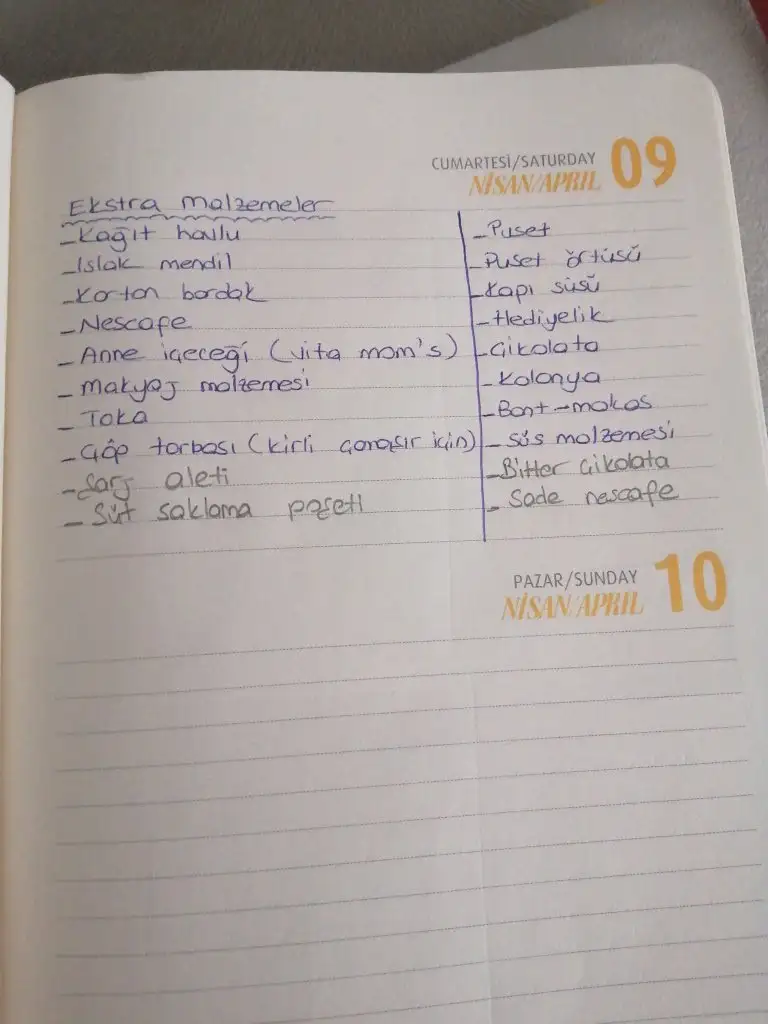 CUMARTESİ/SATURDAY 09
NİSAN/APRIL
Ekstra malzemeler
- Kağıt havlu
- Islak mendil
- Karton bardak
- Nescafe
- Anne içeceği (vita mom's)
- Makyaj malzemesi
- Toka
- Çöp torbası (kirli çamaşır için)
- Şarj aleti
- Süt saklama poşeti
- Puset
- Puset örtüsü
- Kapı süsü
- Hediyelik
- Çikolata
- Kolonya
- Bant-makas
- Süs malzemesi
- Bitter çikolata
- Sade nescafe
PAZAR/SUNDAY 10
NİSAN/APRIL